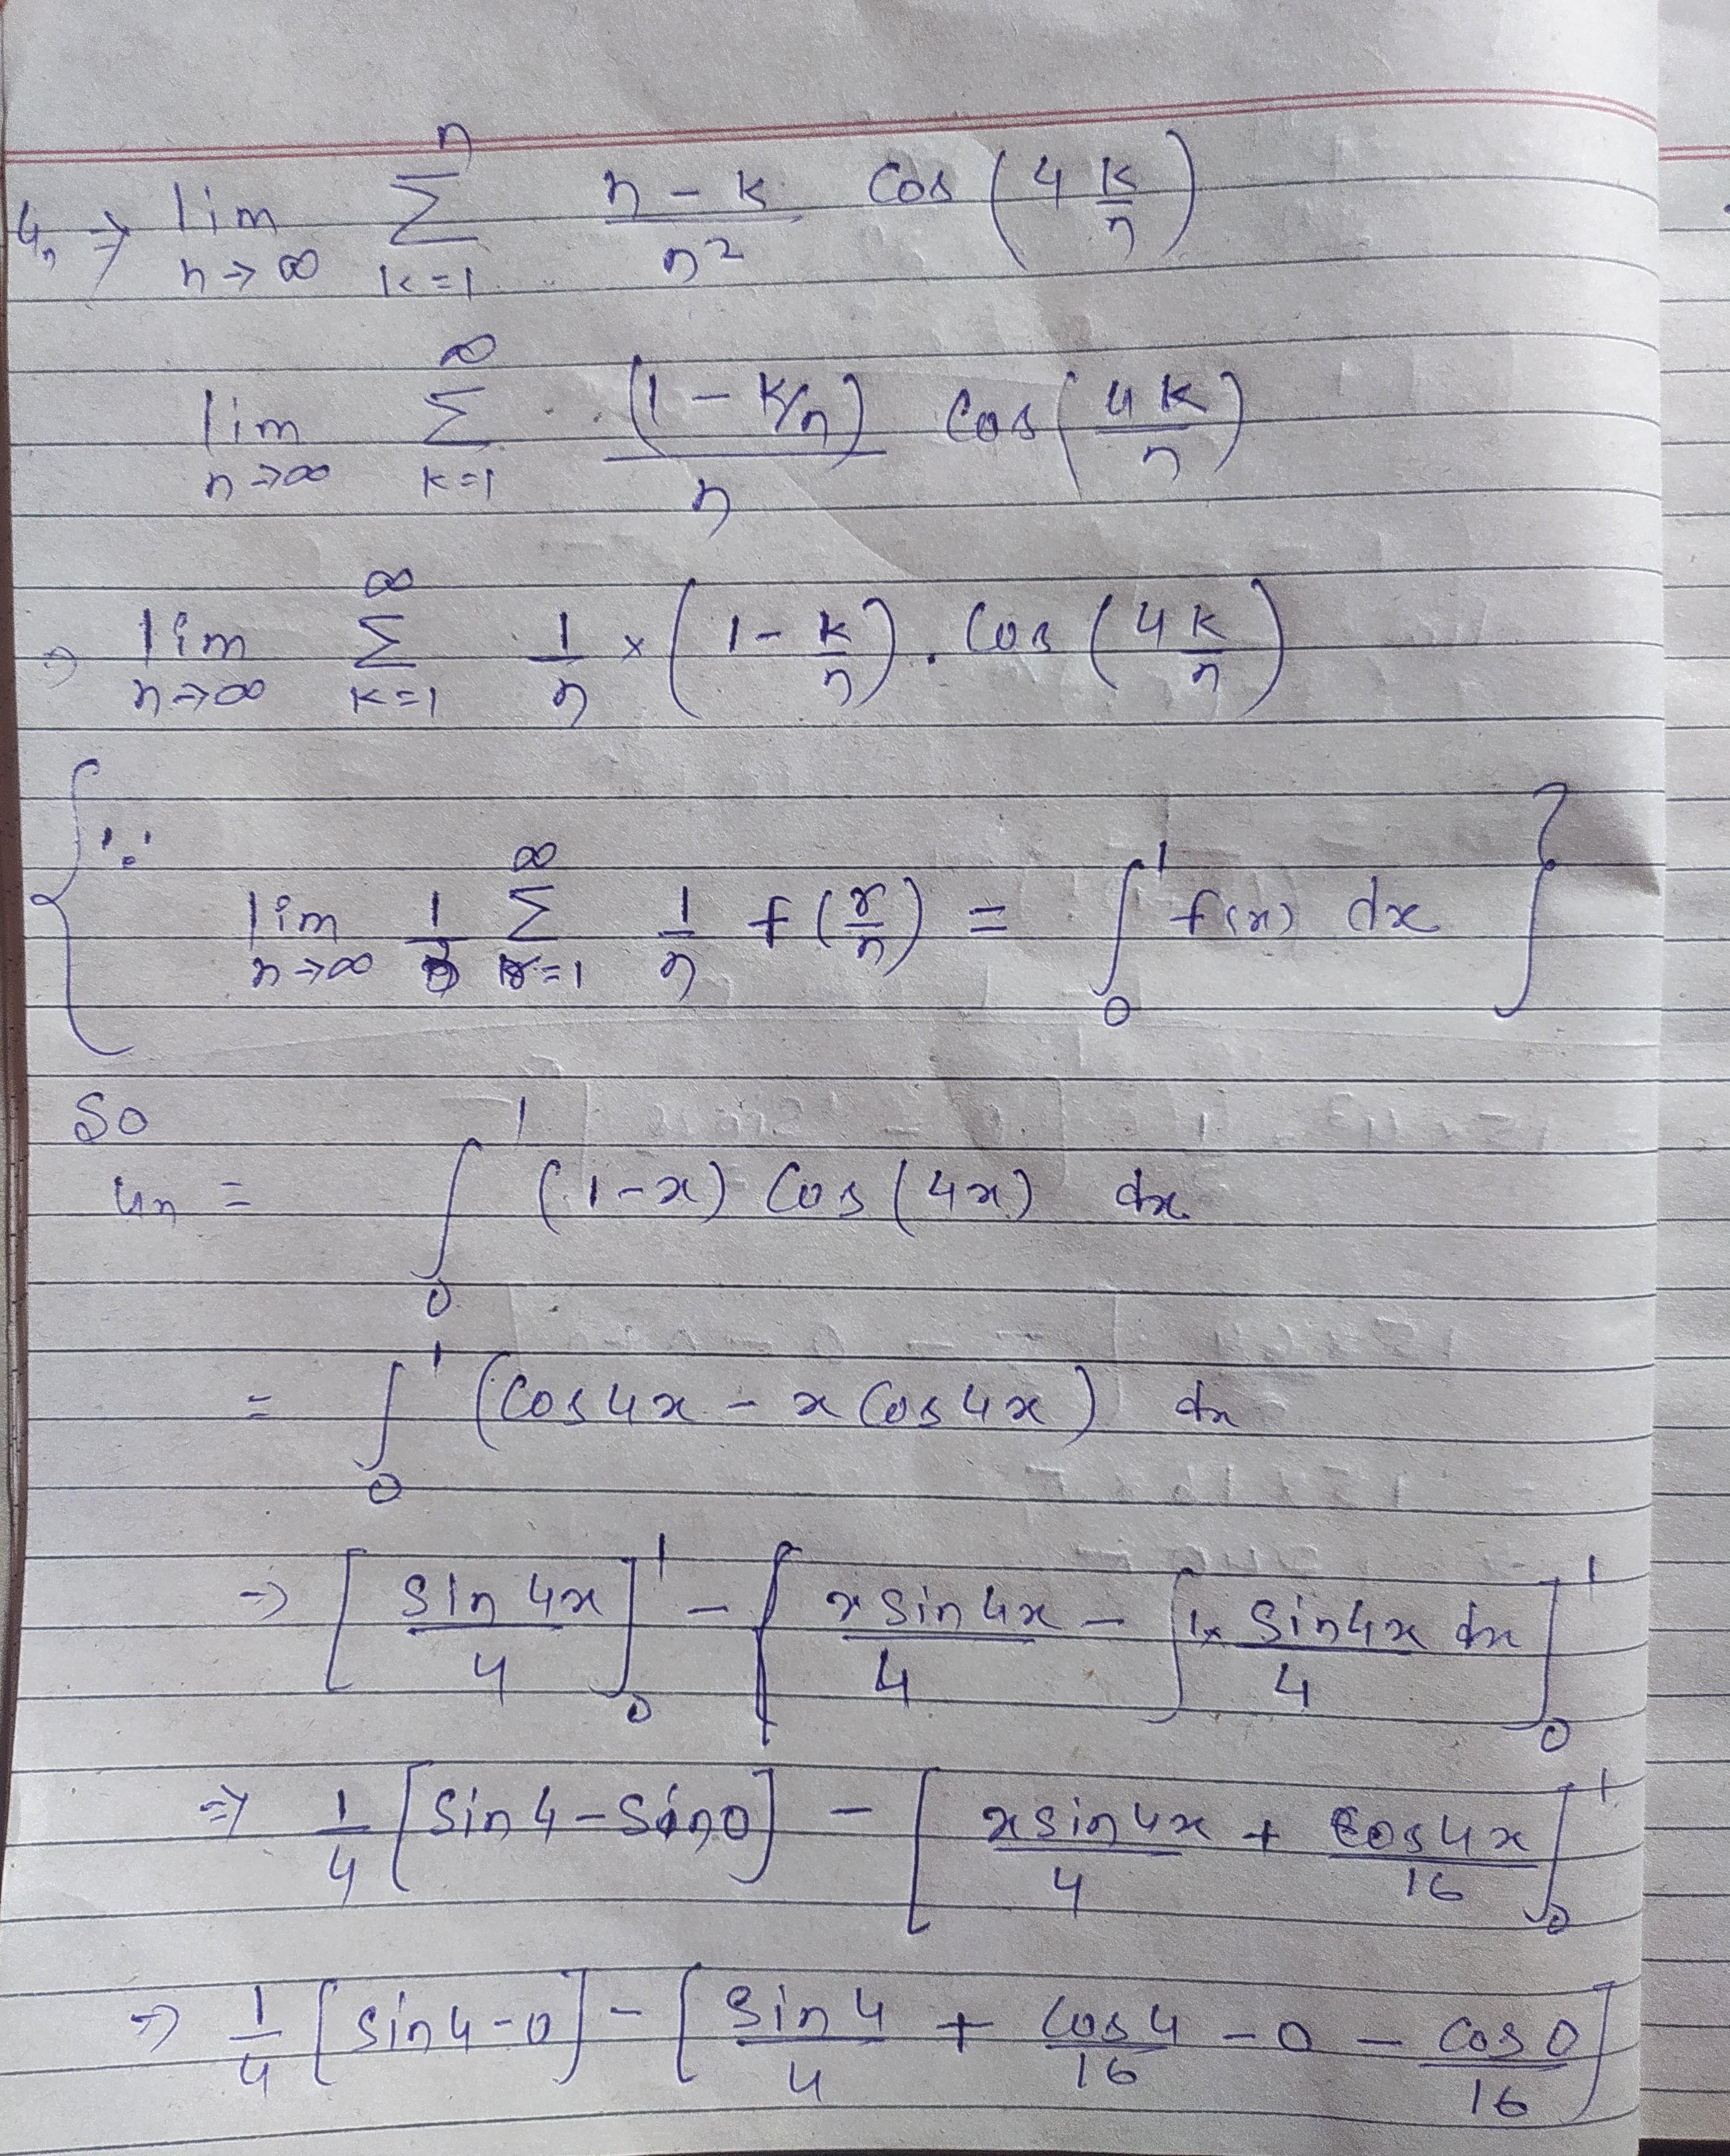 uₙ ⇒ lim n→∞ Σ k=1 n (n - k)/n² Cos (4 k/n)
lim n→∞ Σ k=1 ∞ (1 - k/n)/n Cos (4k/n)
⇒ lim n→∞ Σ k=1 ∞ 1/n × (1 - k/n) . Cos (4k/n)
{ ∵ lim n→∞ Σ r=1 ∞ 1/n f(r/n) = ∫₀¹ f(x) dx }
So
uₙ = ∫₀¹ (1-x) Cos(4x) dx
= ∫₀¹ (Cos4x - x Cos4x) dx
⇒ [sin 4x / 4]₀¹ - [x sin 4x / 4 - ∫ 1× sin4x / 4 dx]₀¹
⇒ 1/4 [Sin 4 - Sin 0] - [x sin4x / 4 + Cos4x / 16]₀¹
⇒ 1/4 [sin4-0] - [Sin 4 / 4 + Cos4 / 16 - 0 - Cos 0 / 16]